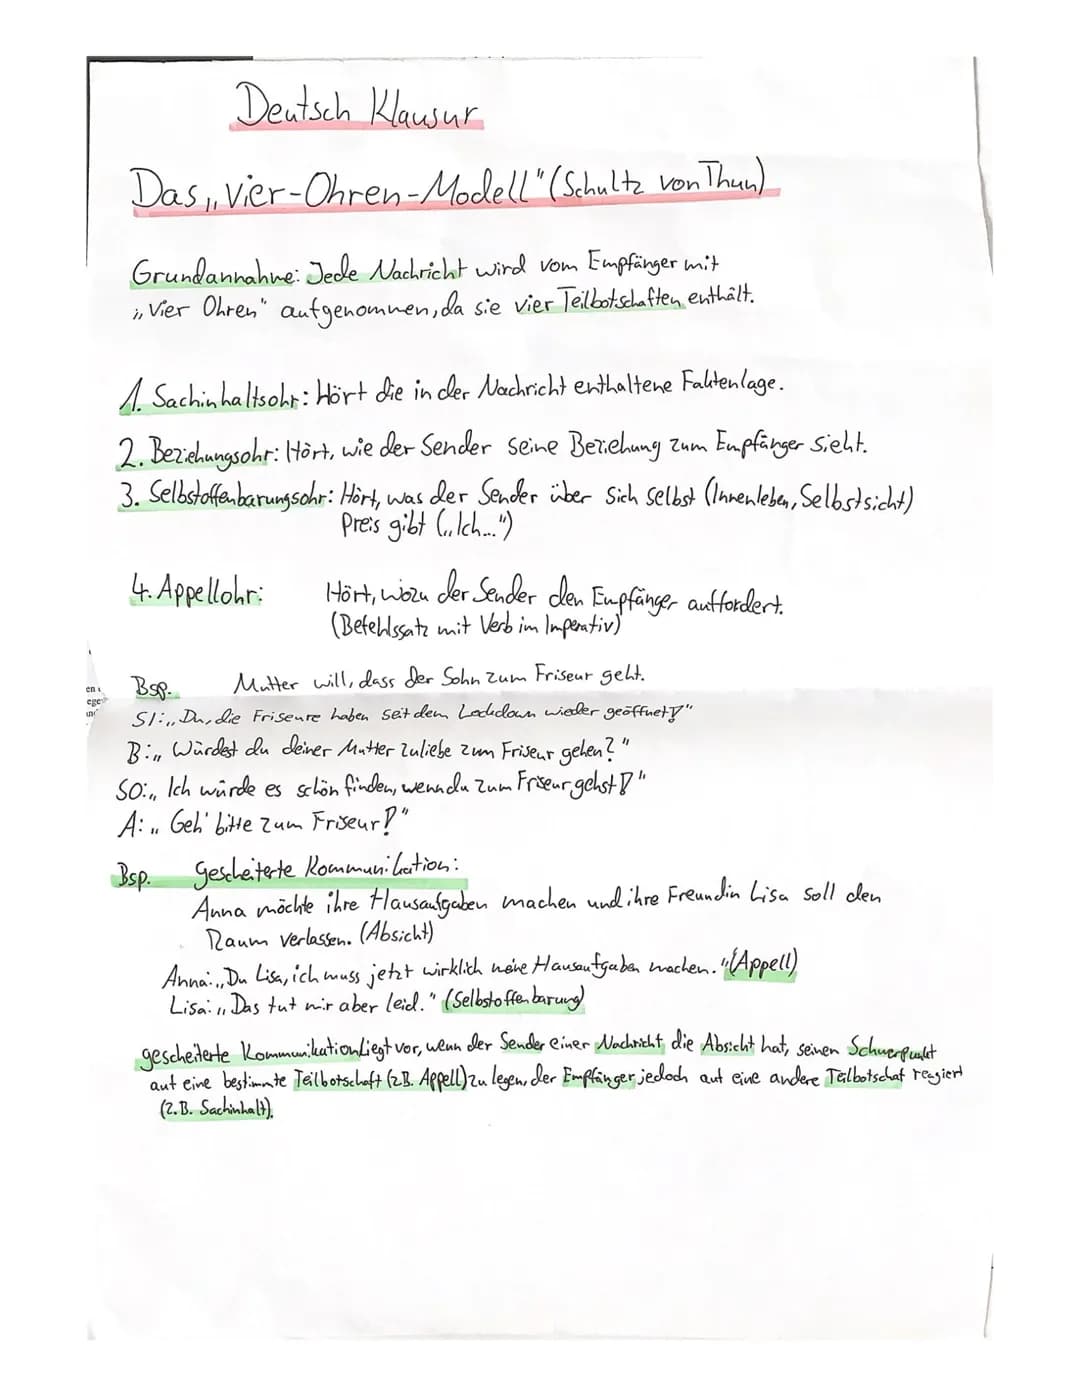 Deutsch Klausur
Das „vier-Ohren-Modell" (Schultz von Thun)
Grundannahme: Jede Nachricht wird vom Empfänger mit
„Vier Ohren" aufgenommen, da sie vier Teilbotschaften enthält.
1. Sachinhaltsohr: Hört die in der Nachricht enthaltene Faktenlage.
2. Beziehungsohr: Hört, wie der Sender seine Beziehung zum Empfänger sieht.
3. Selbstoffenbarungsohr: Hört, was der Sender über sich selbst (Innenleben, Selbstsicht)
Preis gibt („Ich...")
4. Appellohr: Hört, wozu der Sender den Empfänger auffordert.
(Befehlssatz mit Verb im Imperativ)
Bsp. Mutter will, dass der Sohn zum Friseur geht.
SI: „Du, die Friseure haben seit dem Lockdown wieder geöffnet!"
B: „Würdest du deiner Mutter zuliebe zum Friseur gehen?"
SO: „Ich würde es schön finden, wenn du zum Friseur gehst!"
A: „Geh' bitte zum Friseur!"
Bsp. gescheiterte Kommunikation:
Anna möchte ihre Hausaufgaben machen und ihre Freundin Lisa soll den
Raum verlassen. (Absicht)
Anna: „Du Lisa, ich muss jetzt wirklich meine Hausaufgaben machen." (Appell)
Lisa: „Das tut mir aber leid." (Selbstoffenbarung)
gescheiterte Kommunikation liegt vor, wenn der Sender einer Nachricht die Absicht hat, seinen Schwerpunkt
auf eine bestimmte Teilbotschaft (z.B. Appell) zu legen, der Empfänger jedoch auf eine andere Teilbotschaft reagiert
(z.B. Sachinhalt).